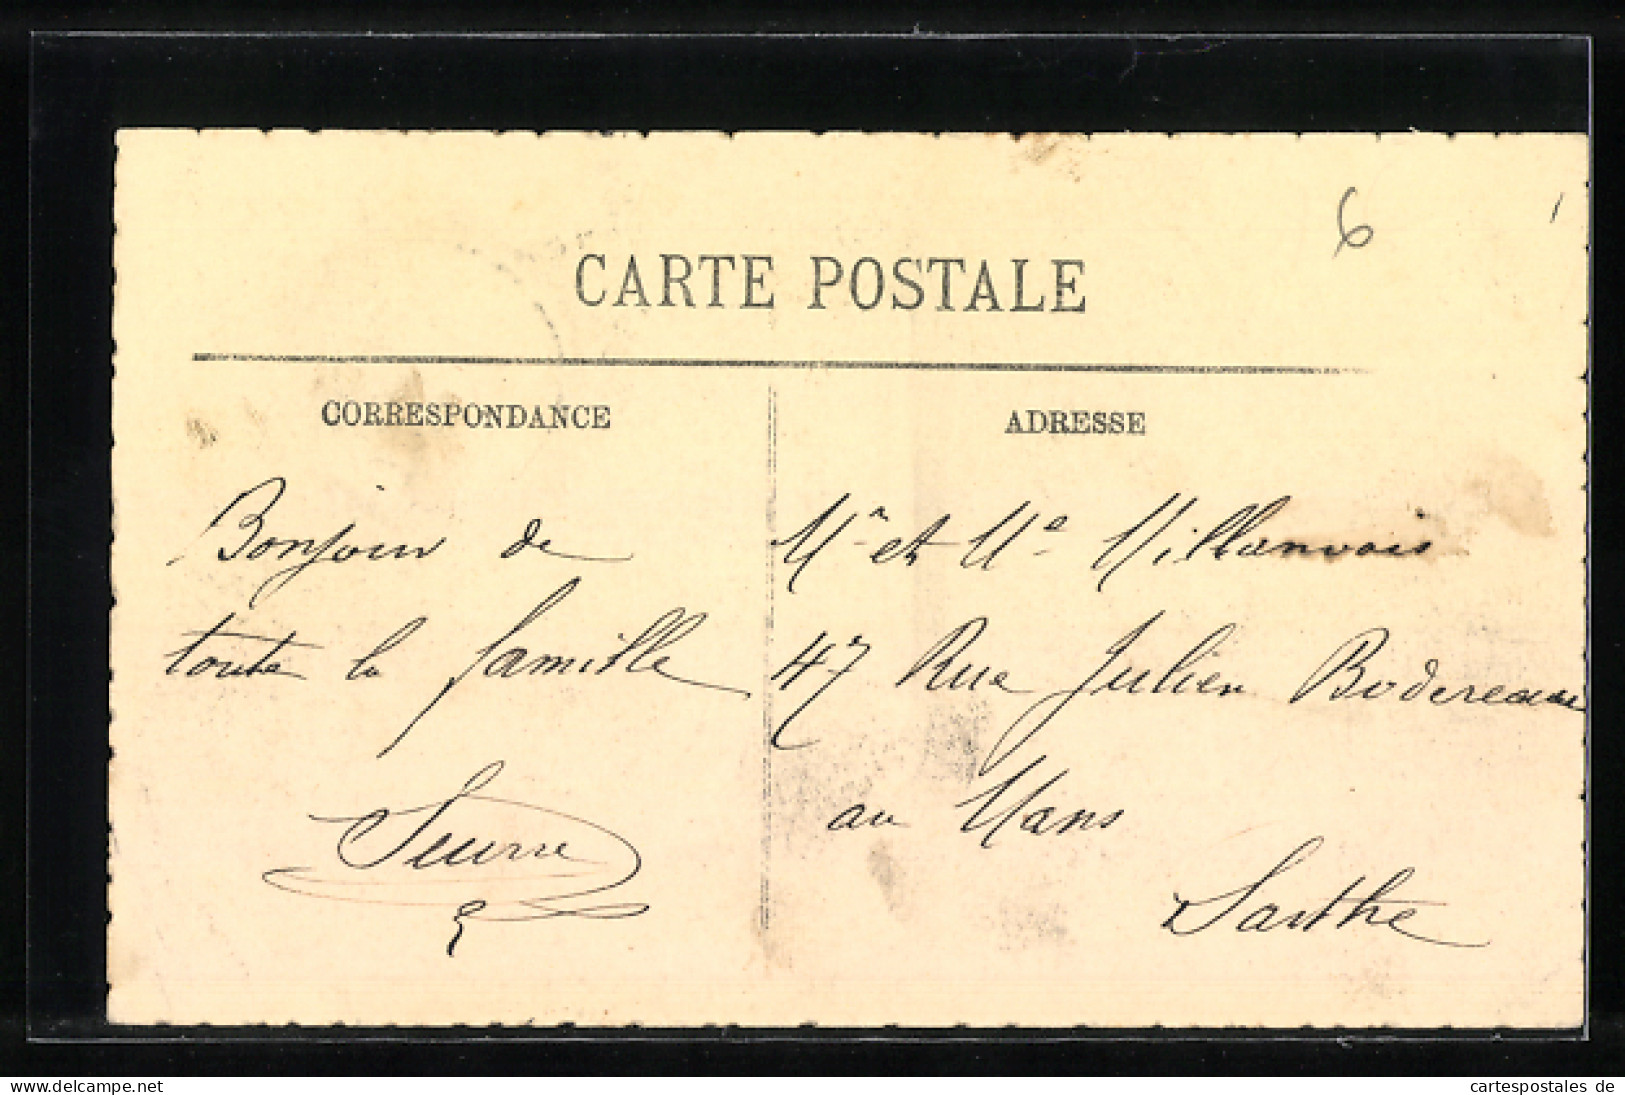 6
CARTE POSTALE
CORRESPONDANCE
Bonjour de
toute la famille
Seurre
ADRESSE
Mr et Me Villanvois
47 Rue Julien Bodereau
au Mans
Sarthe
delcampe.net
cartespostales de